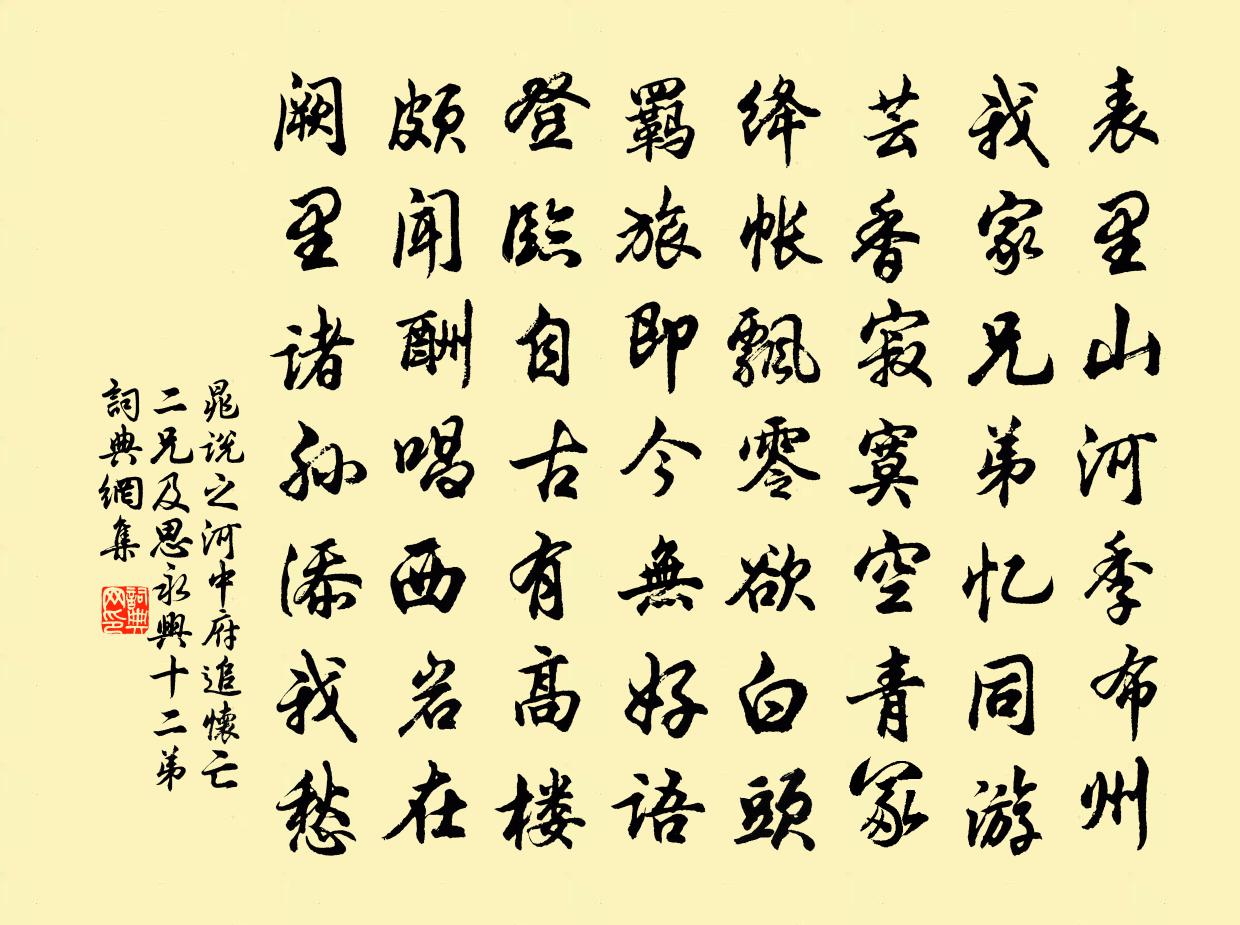 表里山河季布州
我家兄弟忆同游
芸香寂寞空青冢
绛帐飘零欲白頭
羁旅即今無好语
登臨自古有高楼
颇闻酬唱西岩在
阙里诸孙添我愁
晁说之河中府追懷亡
二兄及思永興十二弟
詞典網集
詞典网印